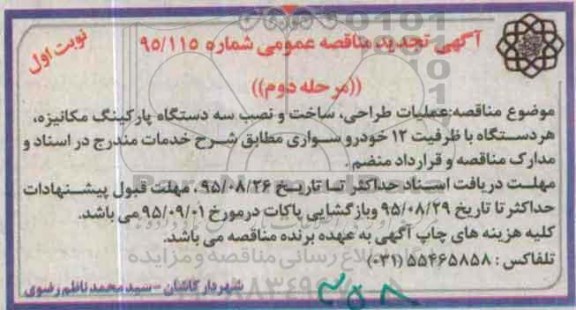 آگهی تجدید مناقصه عمومی شماره ۹۵/۱۱۵
نوبت اول
((مرحله دوم))
موضوع مناقصه:عملیات طراحی، ساخت و نصب سه دستگاه پارکینگ مکانیزه،
هردستگاه با ظرفیت ۱۲ خودرو سواری مطابق شرح خدمات مندرج در اسناد و
مدارک مناقصه و قرارداد منضم .
مهلت دریافت اسناد حداکثر تا تاریخ ۹۵/۰۸/۲۶، مهلت قبول پیشنهادات
حداکثر تا تاریخ ۹۵/۰۸/۲۹ وبازگشایی پاکات درمورخ ۹۵/۰۹/۰۱ می باشد.
کلیه هزینه های چاپ آگهی به عهده برنده مناقصه می باشد.
تلفاکس : ۵۵۴۶۵۸۵۸ (۰۳۱)
شهردار کاشان -سید محمد ناظم رضوی
۳۵۸